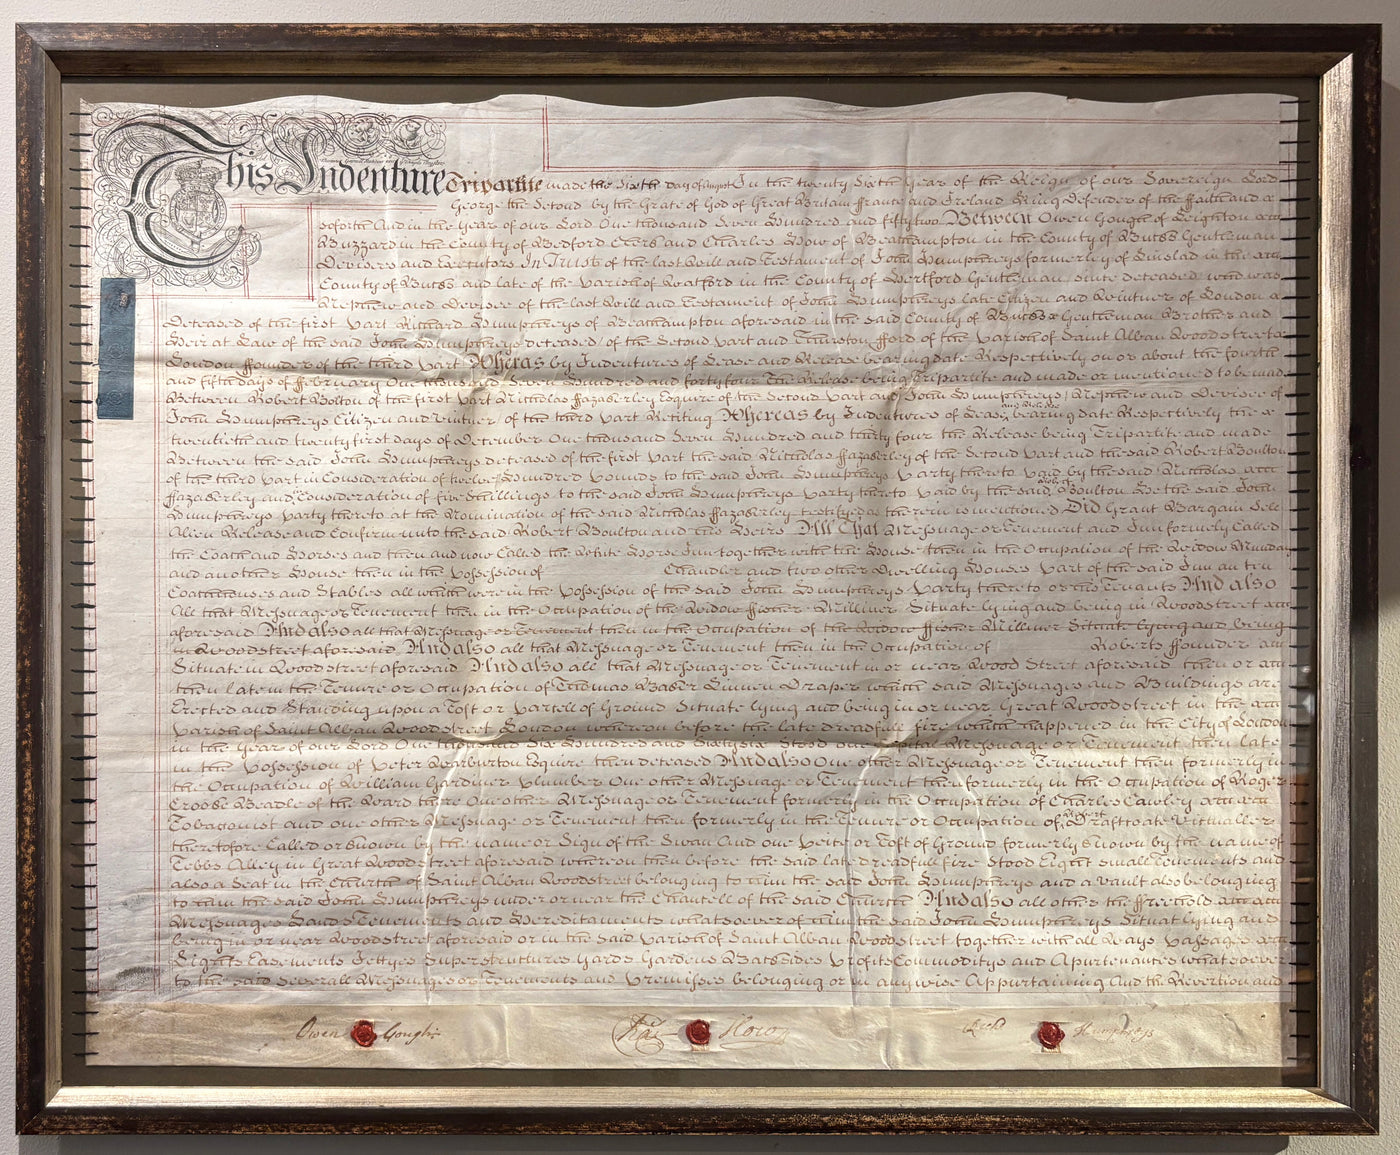 This Indenture Tripartite made the Sixth day of August In the twenty Sixth Year of the Reign of our Sovereign Lord
George the Second by the Grace of God of Great Britain ffrance and Ireland King Defender of the ffaith and
soforth And in the Year of our Lord One thousand Seven Hundred and fifty two Between Owen Gough of Leighton
Buzzard in the County of Bedford and Charles How of in the County of Bucks Gentleman
Devisees and Executors In Trust of the last Will and Testament of John Humphreys formerly of in the
County of Bucks and late of the Parish of Watford in the County of Hertford Gentleman since deceased who was
Nephew and Devisee of the last Will and Testament of John Humphreys late Citizen and Vintner of London
Deceased of the first Part Richard Humphreys of aforesaid in the said County of Bucks Gentleman Brother and
Heir at Law of the said John Humphreys deceased of the Second Part and Thurston fford of the Parish of Saint Alban Woodstreet
London ffounder of the third Part Whereas by Indentures of Lease and Release bearing date Respectively on or about the fourth
and fifth days of ffebruary One thousand Seven Hundred and forty four The Release being Tripartite and made or mentioned to be made
Between Robert Bolton of the first Part Nicholas ffazakerley Esquire of the Second Part and John Humphreys Nephew and Devisee of
John Humphreys Citizen and Vintner of the third Part Reciting Whereas by Indentures of Lease and Release bearing date Respectively the
twentieth and twenty first days of December One thousand Seven Hundred and thirty four the Release being Tripartite and made
Between the said John Humphreys deceased of the first Part the said Nicholas ffazakerley of the Second Part and the said Robert Boulton
of the third Part in Consideration of twelve Hundred Pounds to the said John Humphreys Party thereto paid by the said Nicholas
ffazakerley and Consideration of five Shillings to the said John Humphreys Party thereto paid by the said Robert Boulton He the said John
Humphreys Party thereto at the Nomination of the said Nicholas ffazakerley testifyed as therein is mentioned Did Grant Bargain Sell
Alien Release and Confirm unto the said Robert Boulton and his Heirs All That Messuage or Tenement and Inn formerly Called
the Coach and Horses and then and now Called the White Horse Inn together with the House then in the Occupation of the Widow Munday
and another House then in the Possession of Chandler and two other Dwelling Houses Part of the said Inn
Coachhouses and Stables all which were in the Possession of the said John Humphreys Party thereto or his Tenants And also
All that Messuage or Tenement then in the Occupation of the Widow ffisher Milliner Situate lying and being in Woodstreet
aforesaid And also all that Messuage or Tenement then in the Occupation of the Widow ffisher Milliner Situate lying and being
in Woodstreet aforesaid And also all that Messuage or Tenement then in the Occupation of Roberts ffounder
Situate in Woodstreet aforesaid And also all that Messuage or Tenement in or near Wood Street aforesaid then or
then late in the Tenure or Occupation of Thomas Baker Linnen Draper which said Messuages and Buildings are
Erected and Standing upon a Toft or Parcell of Ground Situate lying and being in or near Great Woodstreet in the
Parish of Saint Alban Woodstreet London whereon before the late dreadful fire which happened in the City of London
in the Year of our Lord One thousand Six Hundred and Sixty six Stood one Capital Messuage or Tenement then late
in the Possession of Peter Warburton Esquire then deceased And also One other Messuage or Tenement then formerly in
the Occupation of William Gardiner Plumber One other Messuage or Tenement then formerly in the Occupation of Roger
Crook Beadle of the Ward there One other Messuage or Tenement formerly in the Occupation of Charles Cawley
Tobaconist and one other Messuage or Tenement then formerly in the Tenure or Occupation of Victualler
theretofore Called or known by the name or Sign of the Swan And one Peice or Toft of Ground formerly known by the name of
Tebbs Alley in Great Woodstreet aforesaid whereon then before the said late dreadfull fire Stood Eight small Tenements and
also a Seat in the Church of Saint Alban Woodstreet belonging to him the said John Humphreys and a Vault also belonging
to him the said John Humphreys under or near the Chancell of the said Church And also all other the ffreehold
Messuages Lands Tenements and Hereditaments whatsoever of him the said John Humphreys Situat lying and
being in or near Woodstreet aforesaid or in the said Parish of Saint Alban Woodstreet together with all Ways Passages
Lights Easements Jettyes Superstructures Yards Gardens Backsides Profits Commoditys and Apurtenances whatsoever
to the said Severall Messuages or Tenements and Premisses belonging or in any wise Appurtaining And the Revertion and
Owen Gough
Chas How
Richd Humphreys